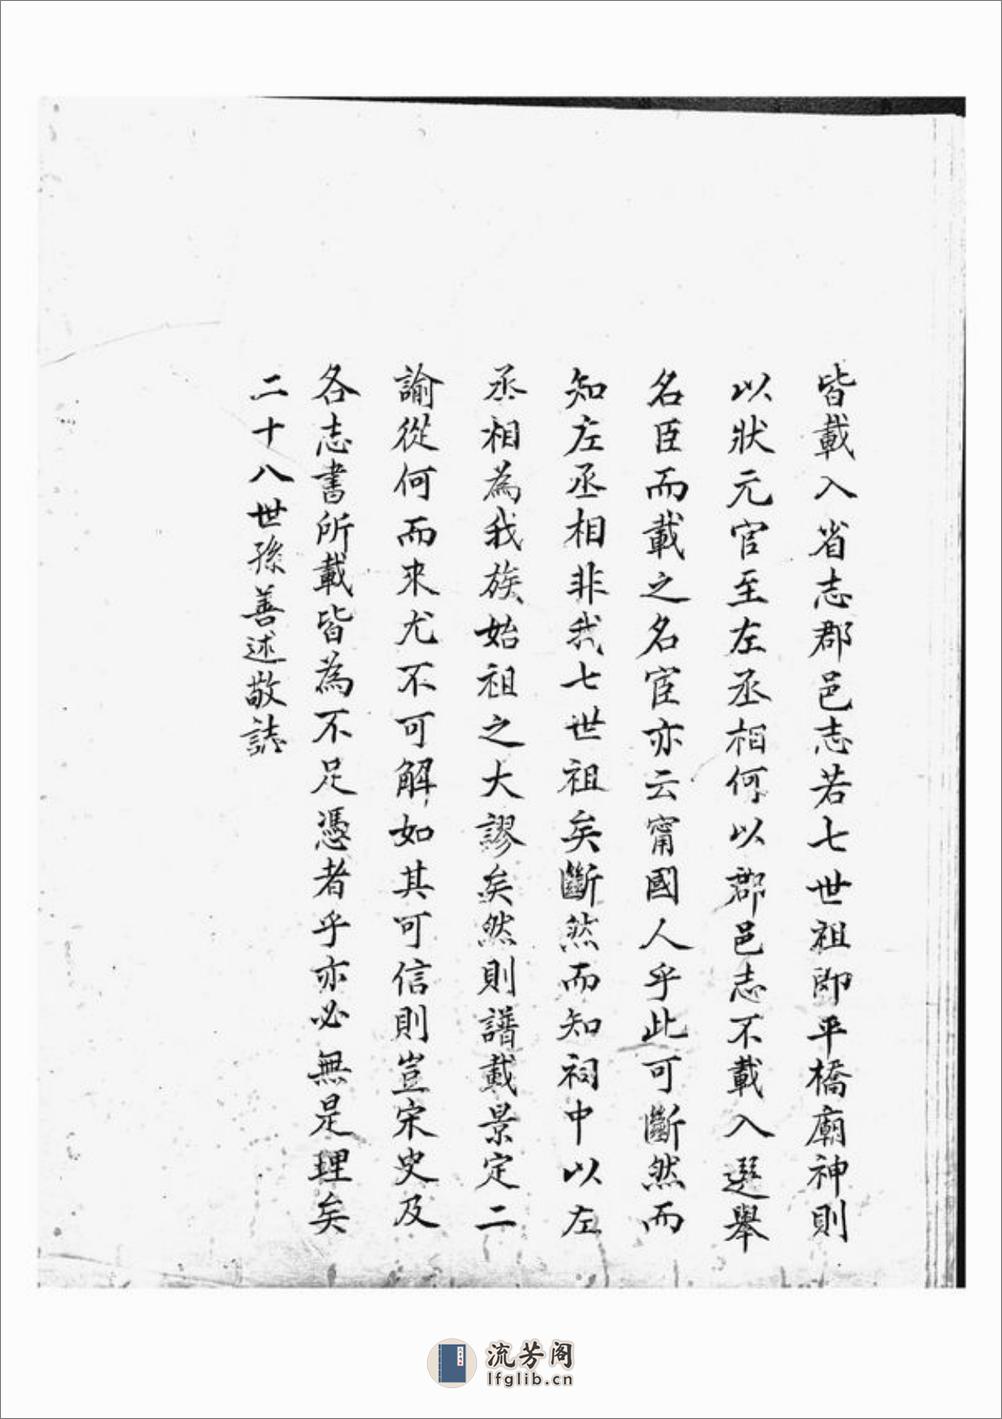 皆載入省志郡邑志若七世祖即平橋廟神則
以狀元官至左丞相何以郡邑志不載入選舉
名臣而載之名宦亦云甯國人乎此可斷然而
知左丞相非我七世祖矣斷然而知祠中以左
丞相為我族始祖之大謬矣然則譜載景定二
諭從何而來尤不可解如其可信則豈宋史及
各志書所載皆為不足憑者乎亦必無是理矣
二十八世孫善述敬誌
流芳阁
lfglib.cn